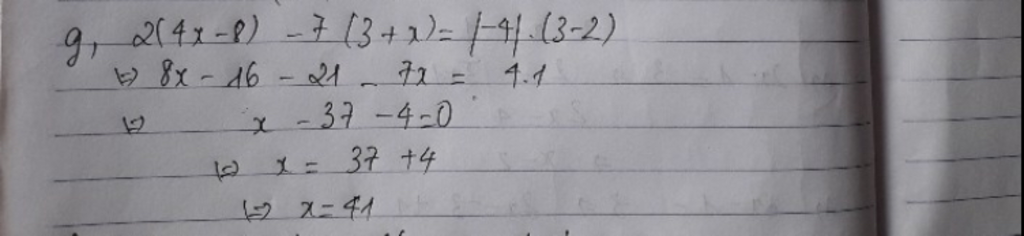 g, 2(4x-8) - 7(3+x) = |-4|.(3-2)
⇔ 8x - 16 - 21 - 7x = 4.1
⇔ x - 37 - 4 = 0
⇔ x = 37 + 4
⇔ x = 41